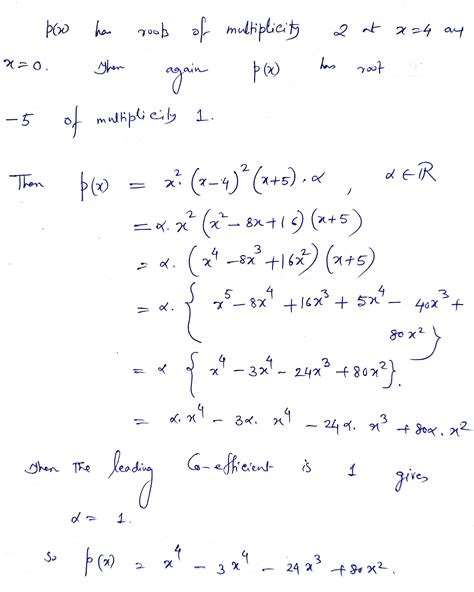 p(x) has roots of multiplicity 2 at x=4 and
x=0. Then again p(x) has root
-5 of multiplicity 1.
Then p(x) = x²·(x-4)²(x+5)·α, α∈ℝ
= α·x²(x²-8x+16)(x+5)
= α·(x⁴-8x³+16x²)(x+5)
= α·{x⁵-8x⁴+16x³+5x⁴-40x³+
80x²}
= α {x⁴-3x⁴-24x³+80x²}.
= α·x⁴ - 3α·x⁴ - 24α·x³ + 80α·x²
Then the leading Co-efficient is 1 gives
α = 1.
So p(x) = x⁴ - 3x⁴ - 24x³ + 80x².